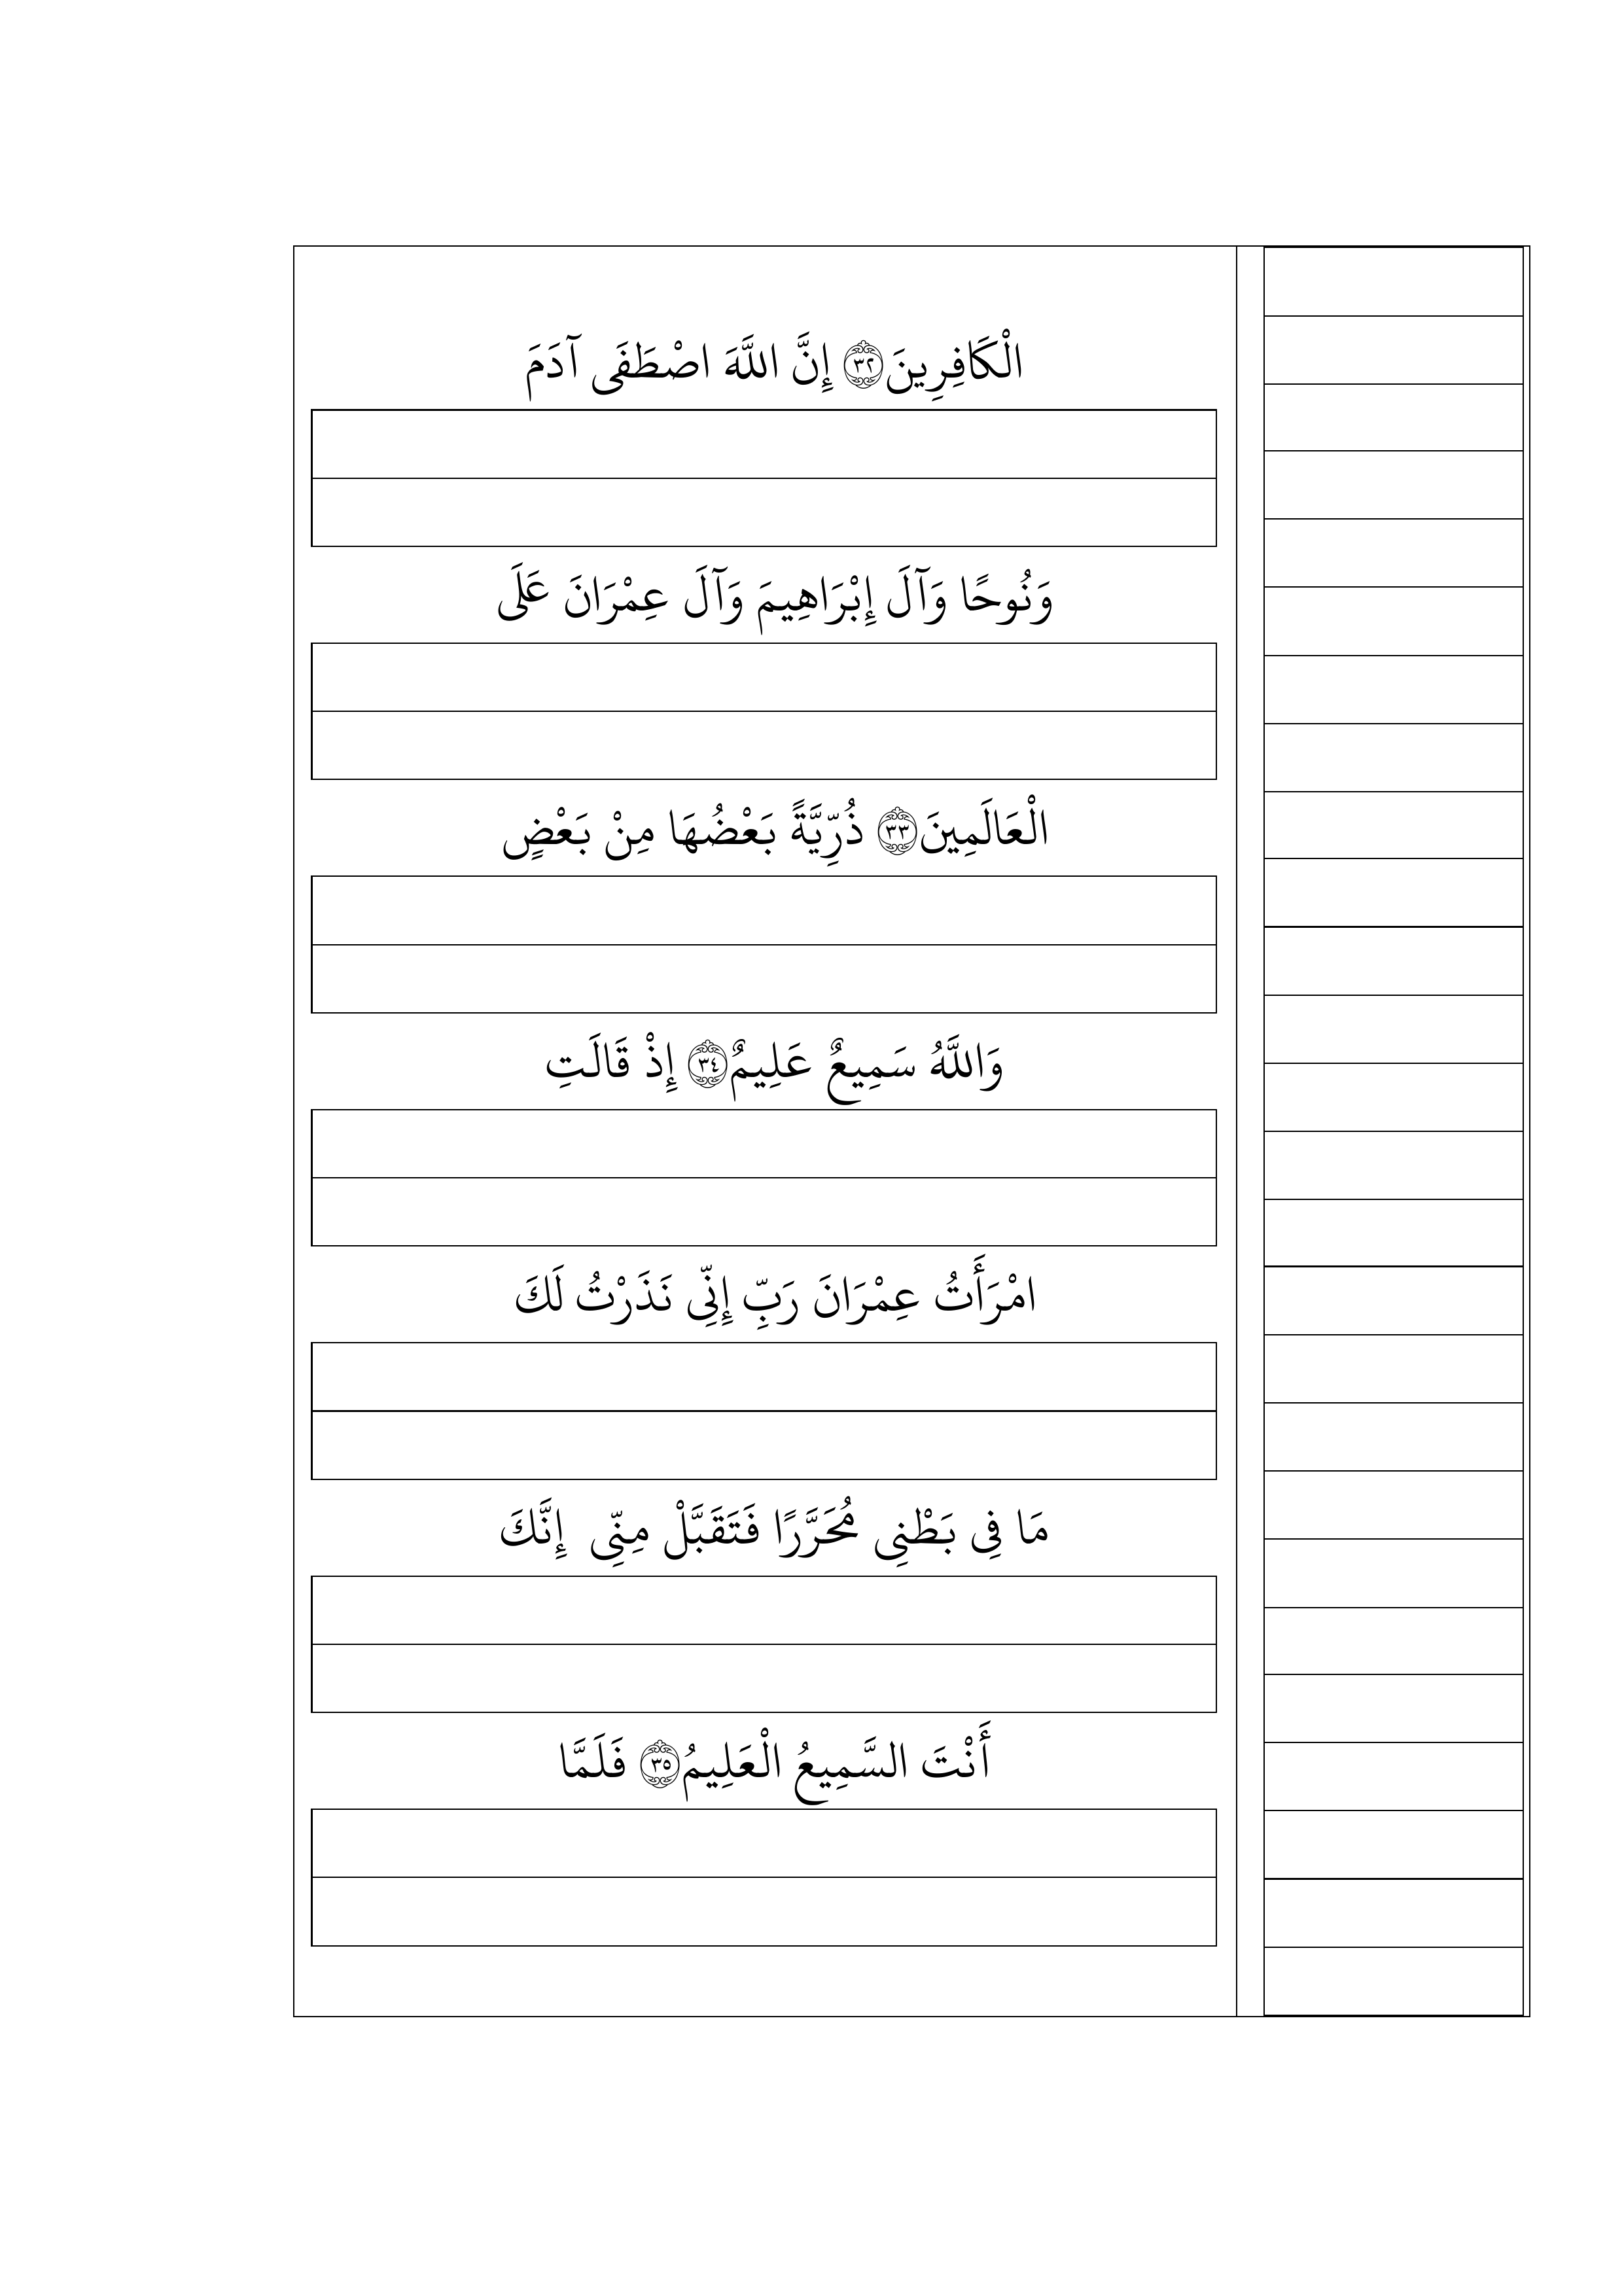 الْكَافِرِينَ ﴿٣٢﴾ إِنَّ اللَّهَ اصْطَفَى آدَمَ
وَنُوحًا وَآلَ إِبْرَاهِيمَ وَآلَ عِمْرَانَ عَلَى
الْعَالَمِينَ ﴿٣٣﴾ ذُرِّيَّةً بَعْضُهَا مِنْ بَعْضٍ
وَاللَّهُ سَمِيعٌ عَلِيمٌ ﴿٣٤﴾ إِذْ قَالَتِ
امْرَأَتُ عِمْرَانَ رَبِّ إِنِّي نَذَرْتُ لَكَ
مَا فِي بَطْنِي مُحَرَّرًا فَتَقَبَّلْ مِنِّي إِنَّكَ
أَنْتَ السَّمِيعُ الْعَلِيمُ ﴿٣٥﴾ فَلَمَّا